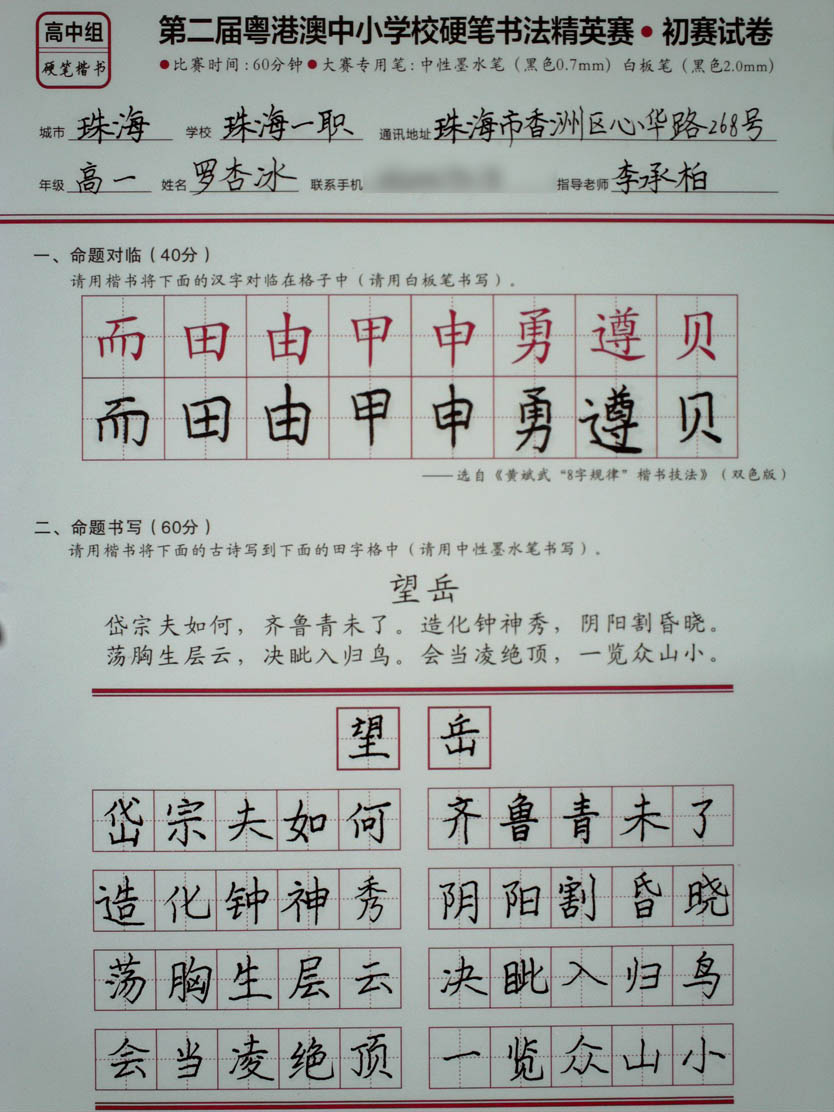 高中组
硬笔楷书
第二届粤港澳中小学校硬笔书法精英赛•初赛试卷
●比赛时间:60分钟●大赛专用笔:中性墨水笔（黑色0.7mm）白板笔（黑色2.0mm）
城市 珠海 学校 珠海一职 通讯地址 珠海市香洲区心华路268号
年级 高一 姓名 罗杏冰 联系手机 指导老师 李承柏
一、命题对临（40分）
请用楷书将下面的汉字对临在格子中（请用白板笔书写）。
而田由甲申勇遵贝
而田由甲申勇遵贝
——选自《黄斌武“8字规律”楷书技法》（双色版）
二、命题书写（60分）
请用楷书将下面的古诗写到下面的田字格中（请用中性墨水笔书写）。
望岳
岱宗夫如何，齐鲁青未了。造化钟神秀，阴阳割昏晓。
荡胸生层云，决眦入归鸟。会当凌绝顶，一览众山小。
望岳
岱宗夫如何 齐鲁青未了
造化钟神秀 阴阳割昏晓
荡胸生层云 决眦入归鸟
会当凌绝顶 一览众山小